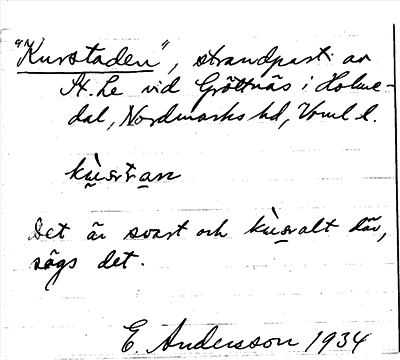 "Kurstaden", strandparti av
St. Le vid Gröttnäs i Holme-
dal, Nordmarks hd, Vrml l.
Det är svart och kùsalt där,
sägs det.
E. Andersson 1934